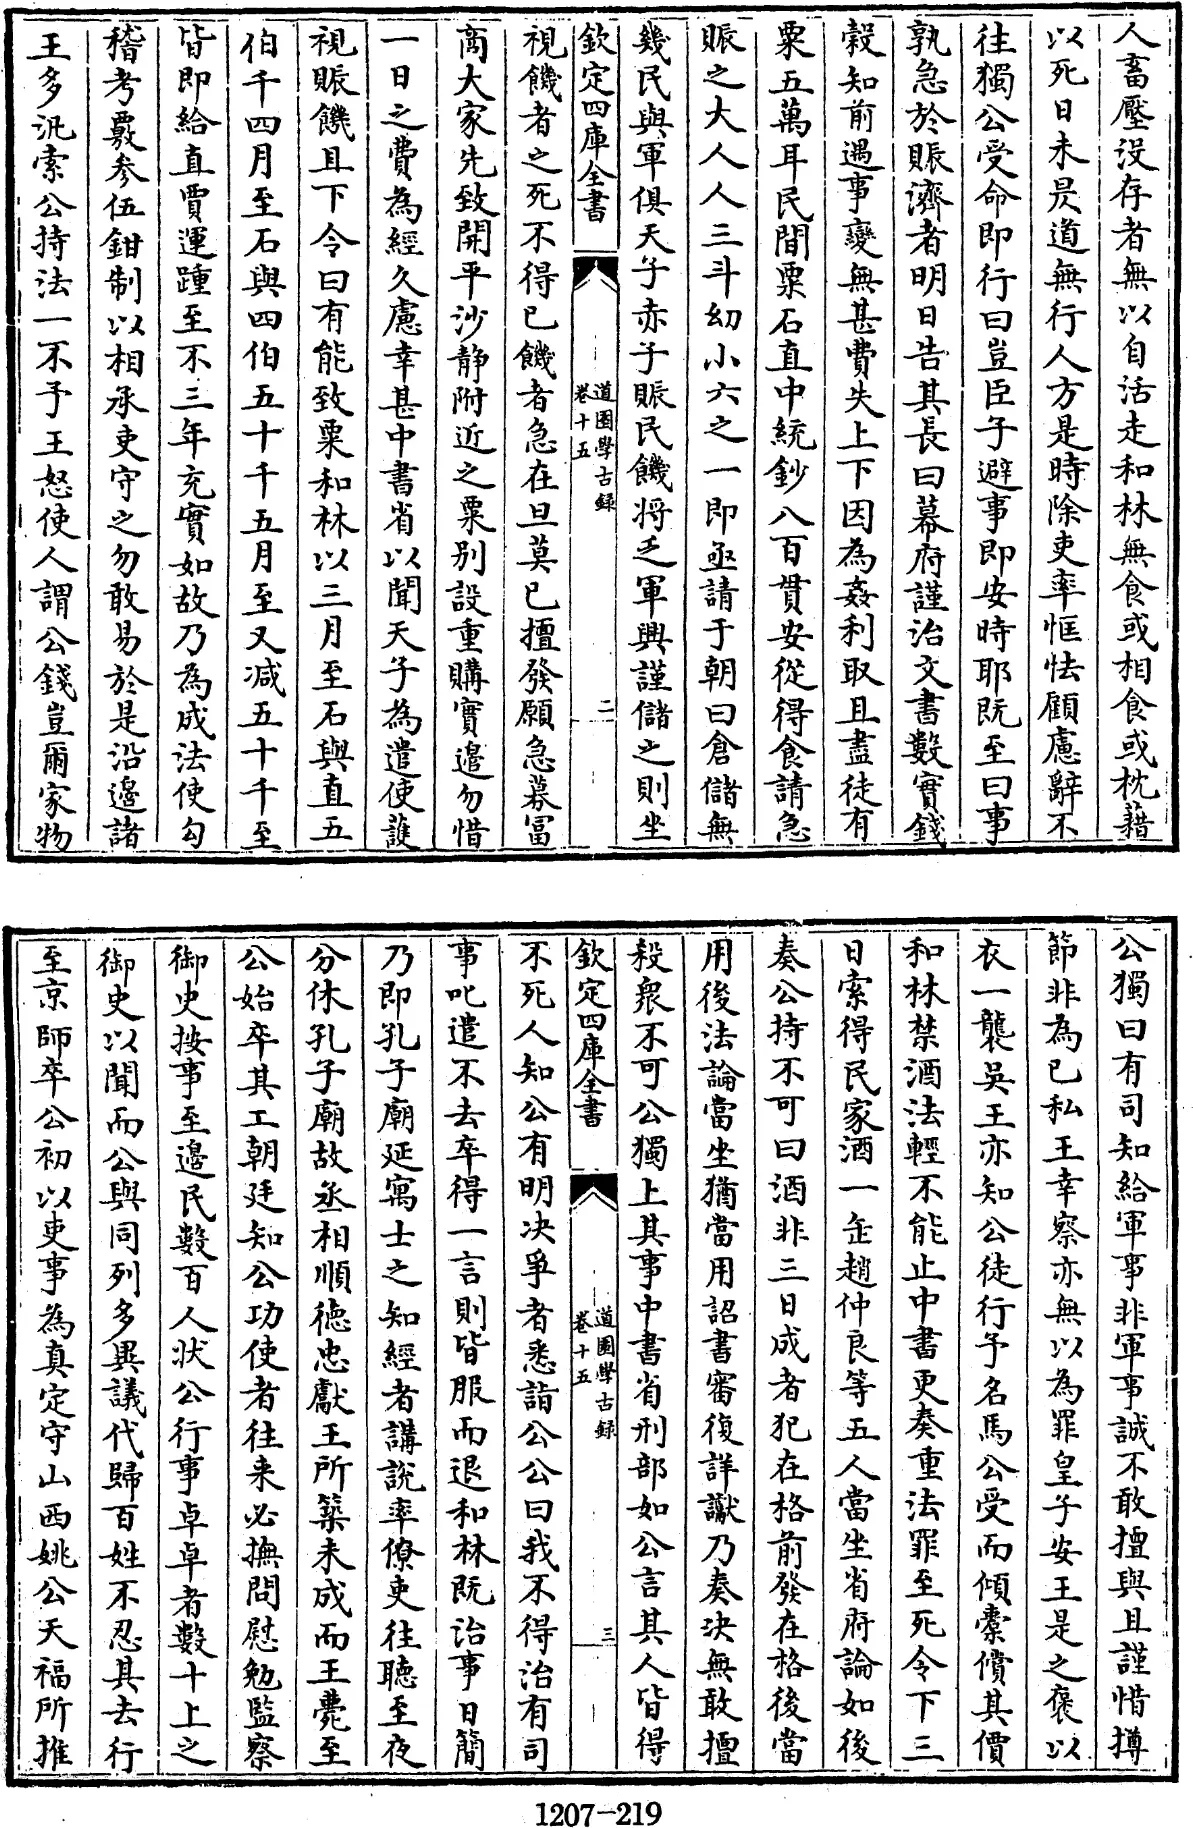 人畜壓沒存者無以自活走和林無食或相食或枕藉
以死日未昃道無行人方是時除吏率恇怯顧慮辭不
往獨公受命即行曰豈臣子避事即安時耶既至曰事
孰急於賑濟者明日告其長曰幕府謹治文書數實錢
穀知前遇事變無甚費失上下因為姦利取且盡徒有
粟五萬耳民間粟石直中統鈔八百貫安從得食請急
賑之大人人三斗幼小六之一即亟請于朝曰倉儲無
幾民與軍俱天子赤子賑民饑將乏軍興謹儲之則坐
欽定四庫全書
道園學古錄
卷十五
二
視饑者之死不得已饑者急在旦莫已擅發願急募冨
商大家先致開平沙靜附近之粟別設重購實邊勿惜
一日之費為經久慮幸甚中書省以聞天子為遣使護
視賑饑且下令曰有能致粟和林以三月至石與直五
伯千四月至石與四伯五十千五月至又減五十千至
皆即給直賈運踵至不三年充實如故乃為成法使勾
稽考覈參伍鉗制以相承吏守之勿敢易於是沿邊諸
王多汎索公持法一不予王怒使人謂公錢豈爾家物
公獨曰有司知給軍事非軍事誠不敢擅與且謹惜撙
節非為已私王幸察亦無以為罪皇子安王是之褒以
衣一襲吳王亦知公徒行予名馬公受而傾橐償其價
和林禁酒法輕不能止中書更奏重法罪至死令下三
日索得民家酒一缶趙仲良等五人當坐省府論如後
奏公持不可曰酒非三日成者犯在格前發在格後當
用後法論當坐猶當用詔書審復詳讞乃奏決無敢擅
殺衆不可公獨上其事中書省刑部如公言其人皆得
欽定四庫全書
道園學古錄
卷十五
三
不死人知公有明决爭者悉詣公公曰我不得治有司
事叱遣不去卒得一言則皆服而退和林既治事日簡
乃即孔子廟延寓士之知經者講說率僚吏往聽至夜
分休孔子廟故丞相順德忠獻王所築未成而王薨至
公始卒其工朝廷知公功使者往来必撫問慰勉監察
御史按事至邊民數百人狀公行事卓卓者數十上之
御史以聞而公與同列多異議代歸百姓不忍其去行
至京師卒公初以吏事為真定守山西姚公天福所推
1207-219